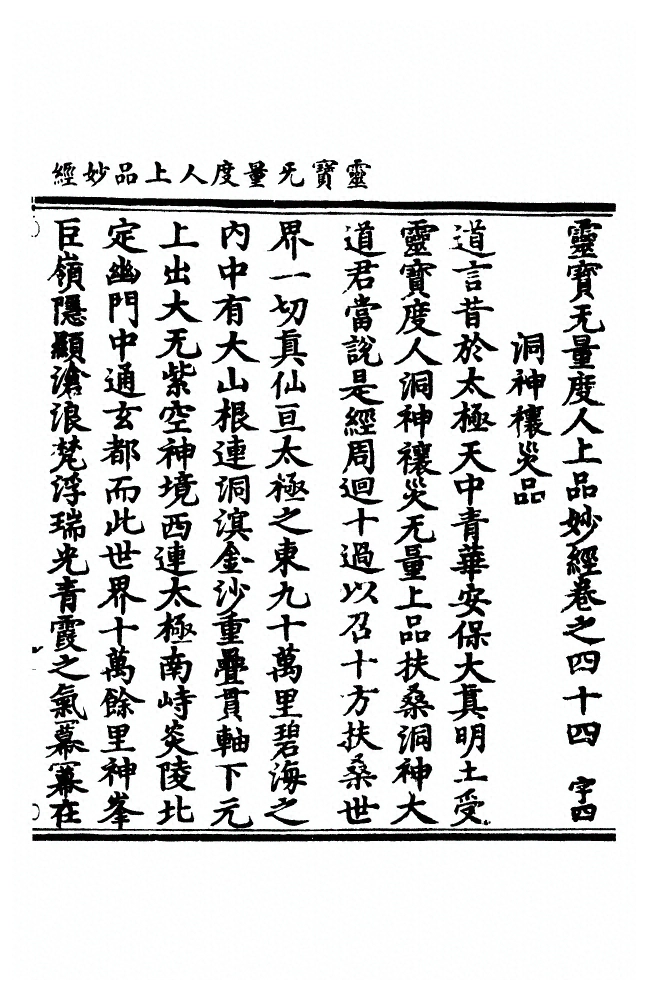 靈寶无量度人上品妙經
靈寶无量度人上品妙經卷之四十四 字四
洞神禳災品
道言昔於太極天中青華安保大真明土受
靈寶度人洞神禳災无量上品扶桑洞神大
道君當說是經周迴十過以召十方扶桑世
界一切真仙亘太極之東九十萬里碧海之
內中有大山根連洞濵金沙重疊貫軸下元
上出大无紫空神境西連太極南峙炎陵北
定幽門中通玄都而此世界十萬餘里神峯
巨嶺隱顯滄浪梵浮瑞光青霞之氣冪冪在